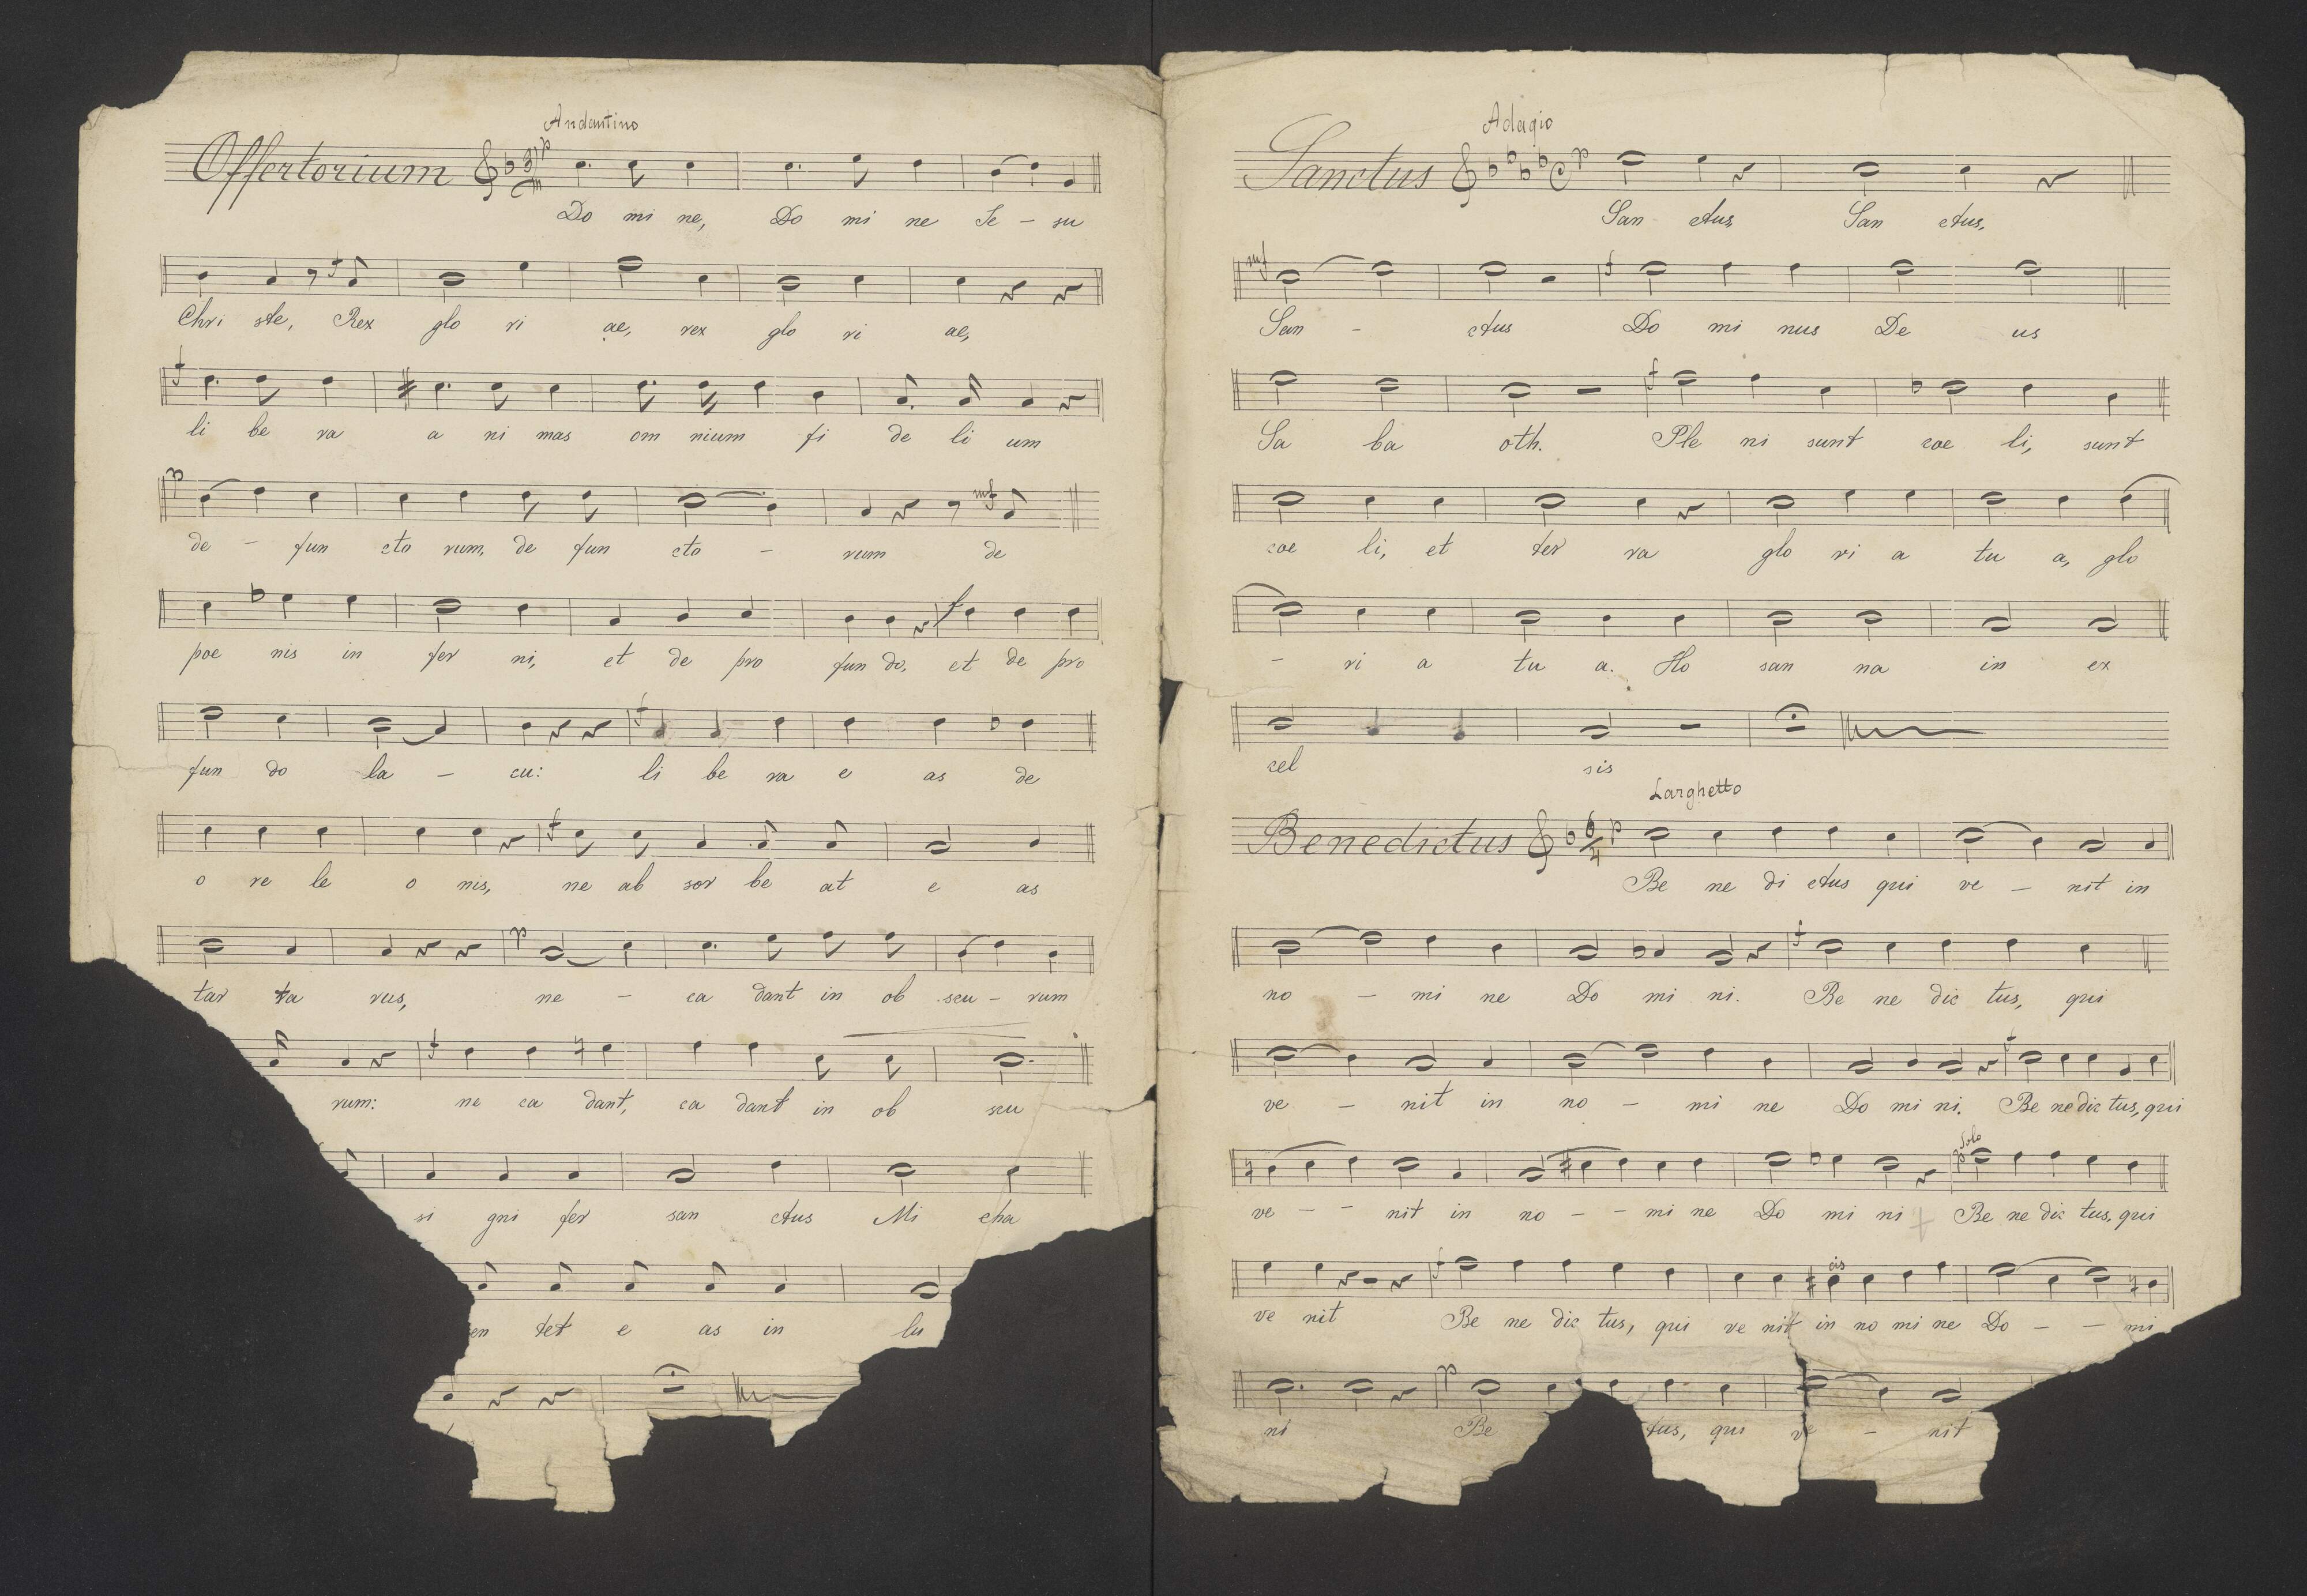 Andantino
Offertorium p
Do mi ne, Do mi ne Je – su
f
Chri ste, Rex glo ri ae, rex glo ri ae,
f
li be ra a ni mas om nium fi de li um
p mf
de – fun cto rum, de fun cto – rum de
f
poe nis in fer ni, et de pro fun do, et de pro
f
fun do la – cu: li be ra e as de
f
o re le o nis, ne ab sor be at e as
p
tar ta rus, ne – ca dant in ob scu – rum
f
rum: ne ca dant, ca dant in ob scu
si gni fer san ctus Mi cha
en tet e as in lu
Adagio
Sanctus p
San ctus, San ctus,
mf f
San – ctus Do mi nus De us
f
Sa ba oth. Ple ni sunt coe li, sunt
coe li, et ter ra glo ri a tu a, glo
– ri a tu a. Ho san na in ex
cel sis
Larghetto
Benedictus 6/4 p
Be ne di ctus qui ve – nit in
f
no – mi ne Do mi ni. Be ne dic tus, qui
f
ve – nit in no – mi ne Do mi ni. Be ne dic tus, qui
Solo
p
ve – – nit in no – – mi ne Do mi ni + Be ne dic tus, qui
f cis
ve nit Be ne dic tus, qui ve nit in no mi ne Do – – mi
p
ni Be tus, qui ve – nit